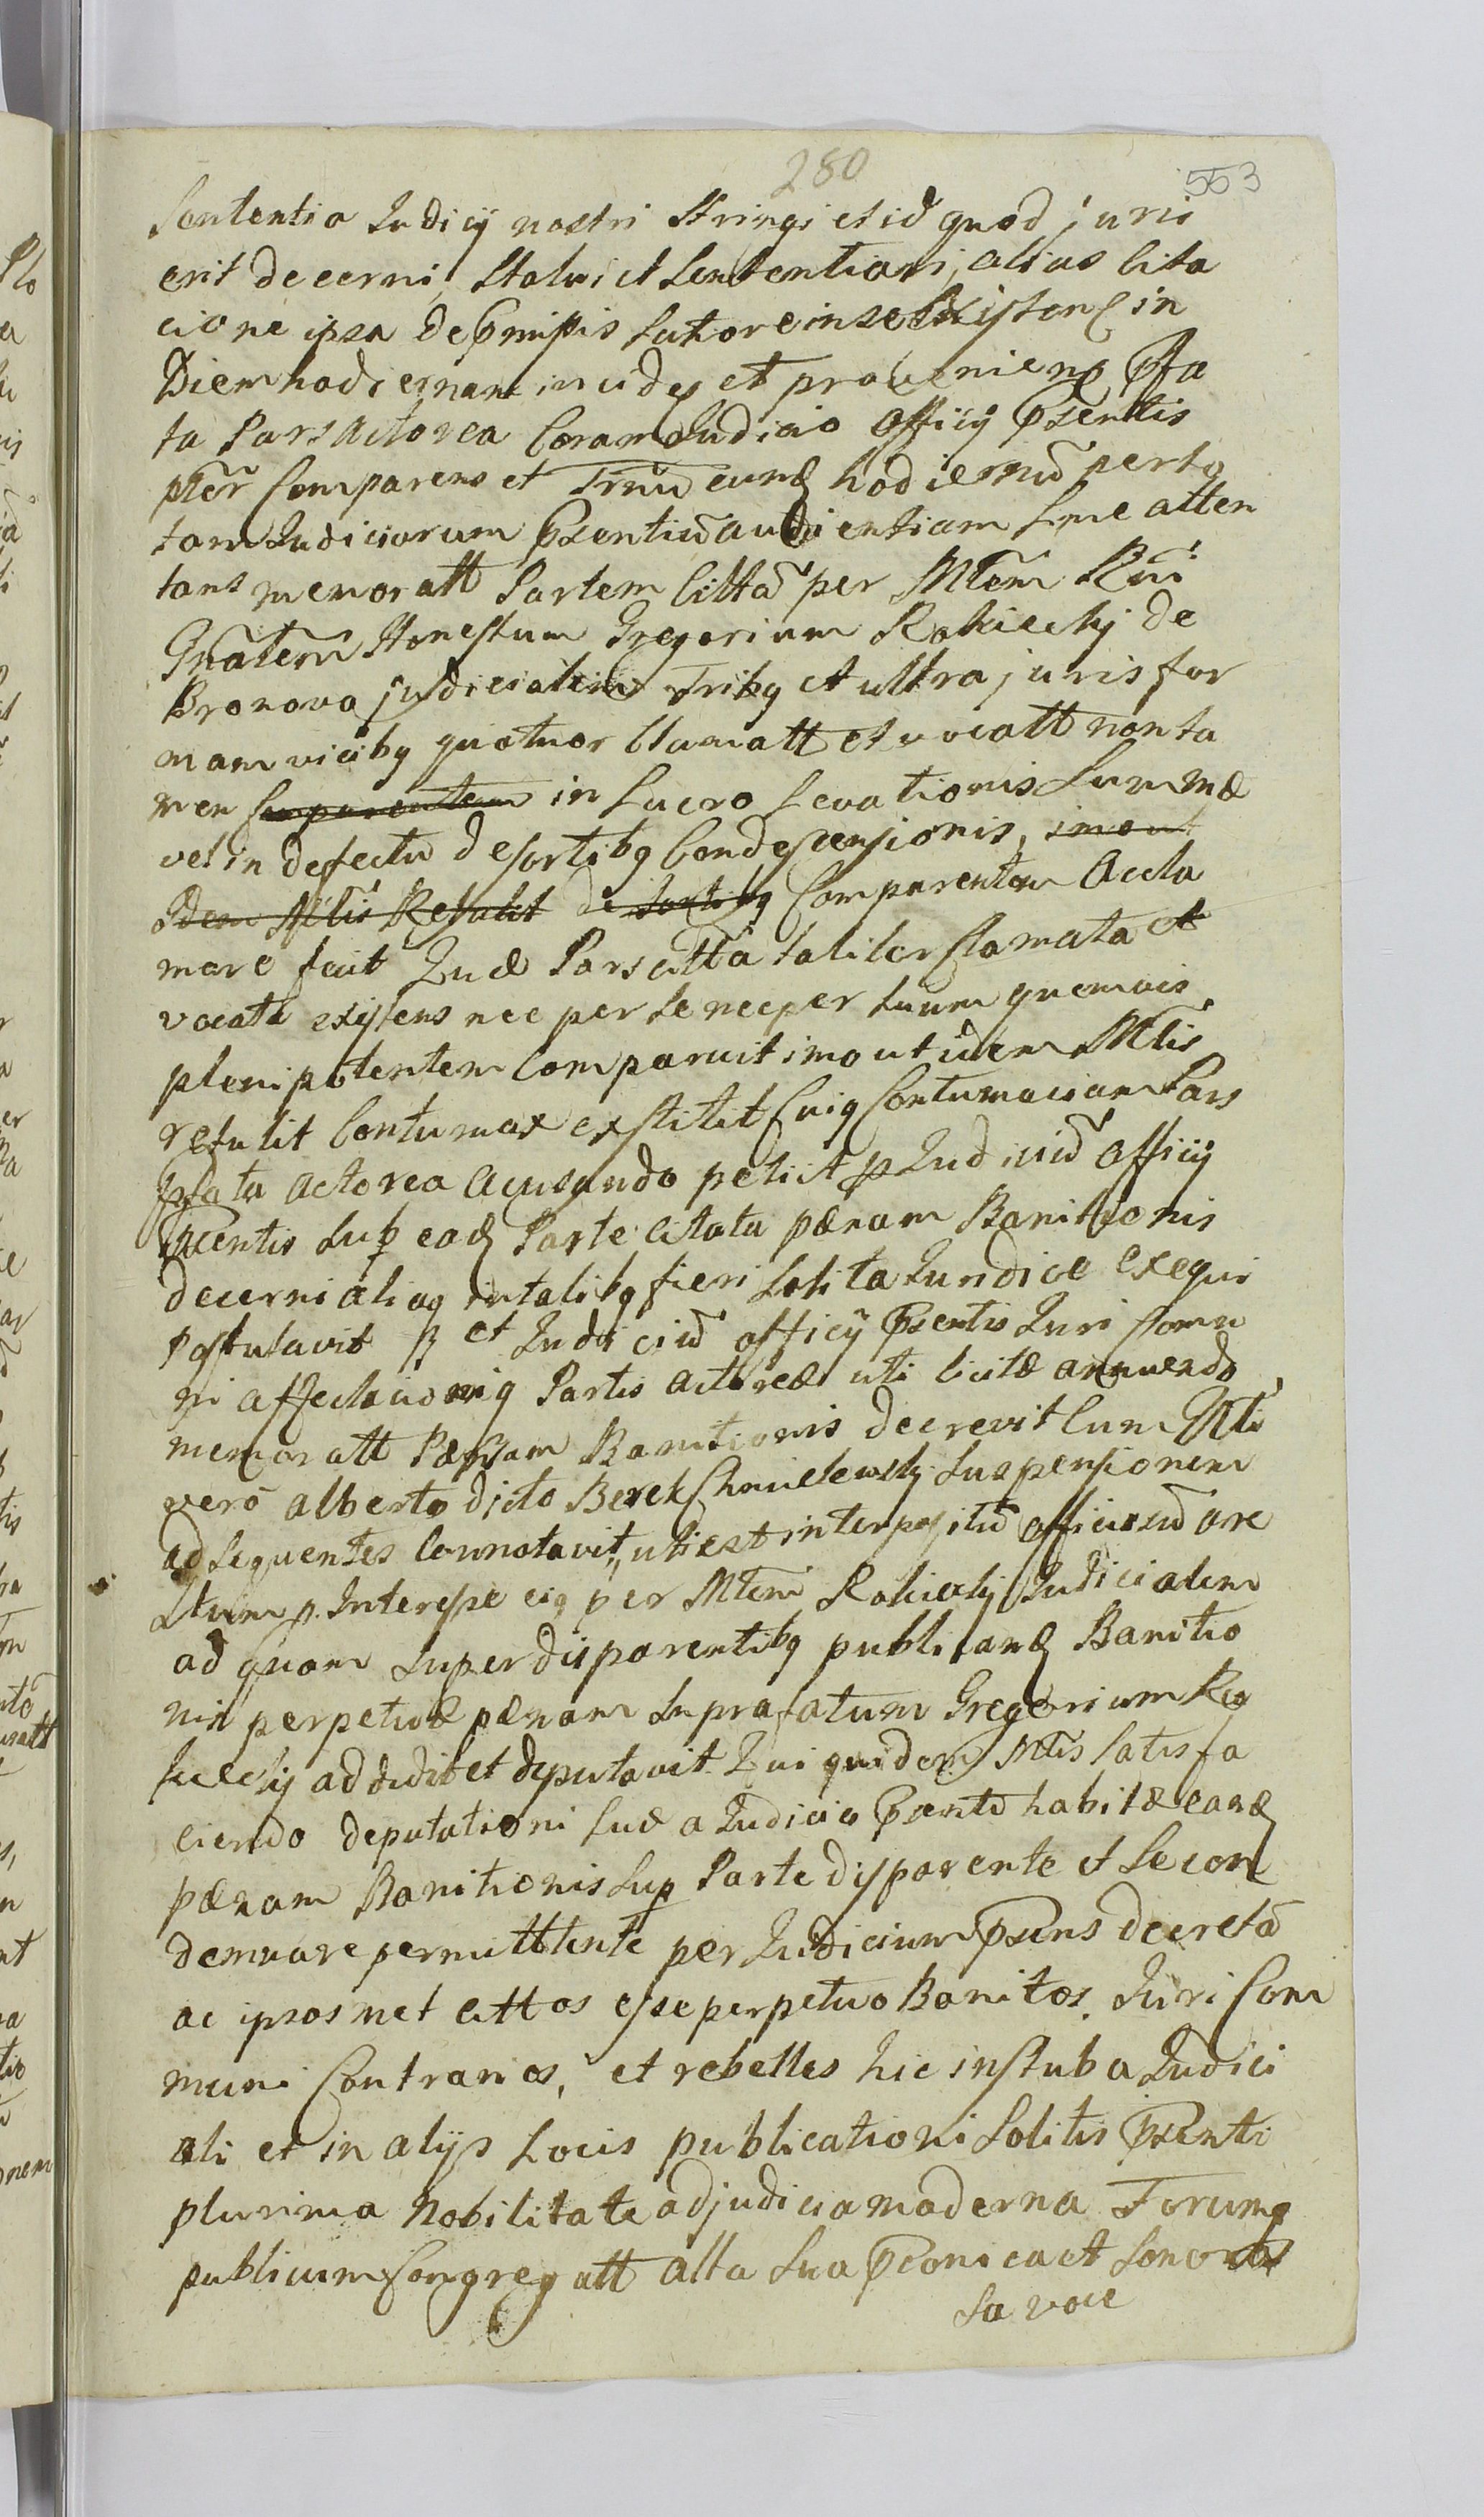 280
553
Sententia Judicij nostri stringi et id quod juris
erit decerni, Statui et Sententiari, alias Cita
cione ipsa de pmissis latiore in se Existen in
Diem hodiernam inciden et provenien Pfa
ta Pars actorea Coram Judicio Officij Psentis
pler Comparens et Trnũ eund hodiernũ per to
tam Judiciorum Psentiũ audientiam sine atten
tans memoratt Partem Cittã per Mtem Rni
Gnatem Honestum Gregorium Rokiecky de
Bronowo judicialem Tribq et ultra juris for
mam vicibq quatuor Clamatt et vocatt non ta
men Comparentem in Lucro Levationis Summæ
vel in defectu de sortibq Condescensionis, imo ut
Idem Mtis Retulit de sortibq Comparentem Accla
mare fecit Quæ Pars cittã taliter Clamata et
vocata existens nec per se nec per suum quemvis
plenipotentem Comparuit imo ut idem Mtis
retulit Contumax exstitit Cuiq Contumaciam Pars
pfata Actorea Acusando petiit p Judiciũ Officij
Psentis Sup ead Parte Citata pænam Banitionis
decerni aliaq in talibq fieri Solita Juridice exequi
Postulavit R et Judiciũ officij Psentis Juri Comu
ni affectacioniq Partis actoreæ uti licitæ annuendo
memoratt Pænam Banitionis decrevit Cum Mti
vero alberto dicto Berek Chmielewsky Suspensionem
ad sequentes Connotavit, uti est interpositũ officiosũ are
stum p. Interesse eiq per Mtem Rokiecky Judicialem
ad quam super disparentibq publicand Banitio
nis perpetuæ pænam supra fatum Gregorium Ro
kiecky addidit et deputavit Qui quidem Mtis Satisfa
ciendo deputationi suæ a Judicio Psente habitæ eand
pænam Banitionis Sup Parte disparente et se con
demnare permitttente per Judicium Psens decretã
ac ipsos met cittos esse perpetuo Banitos, Juri Com
muni Contrarios, et rebelles hic in Stuba Judici
ali et in alijs Locis publicationi Solitis Psenti
plurima Nobilitate ad judicia moderna Forumq
publicum Congregatt alta Sua Pconica et Sonoro
Sa voce